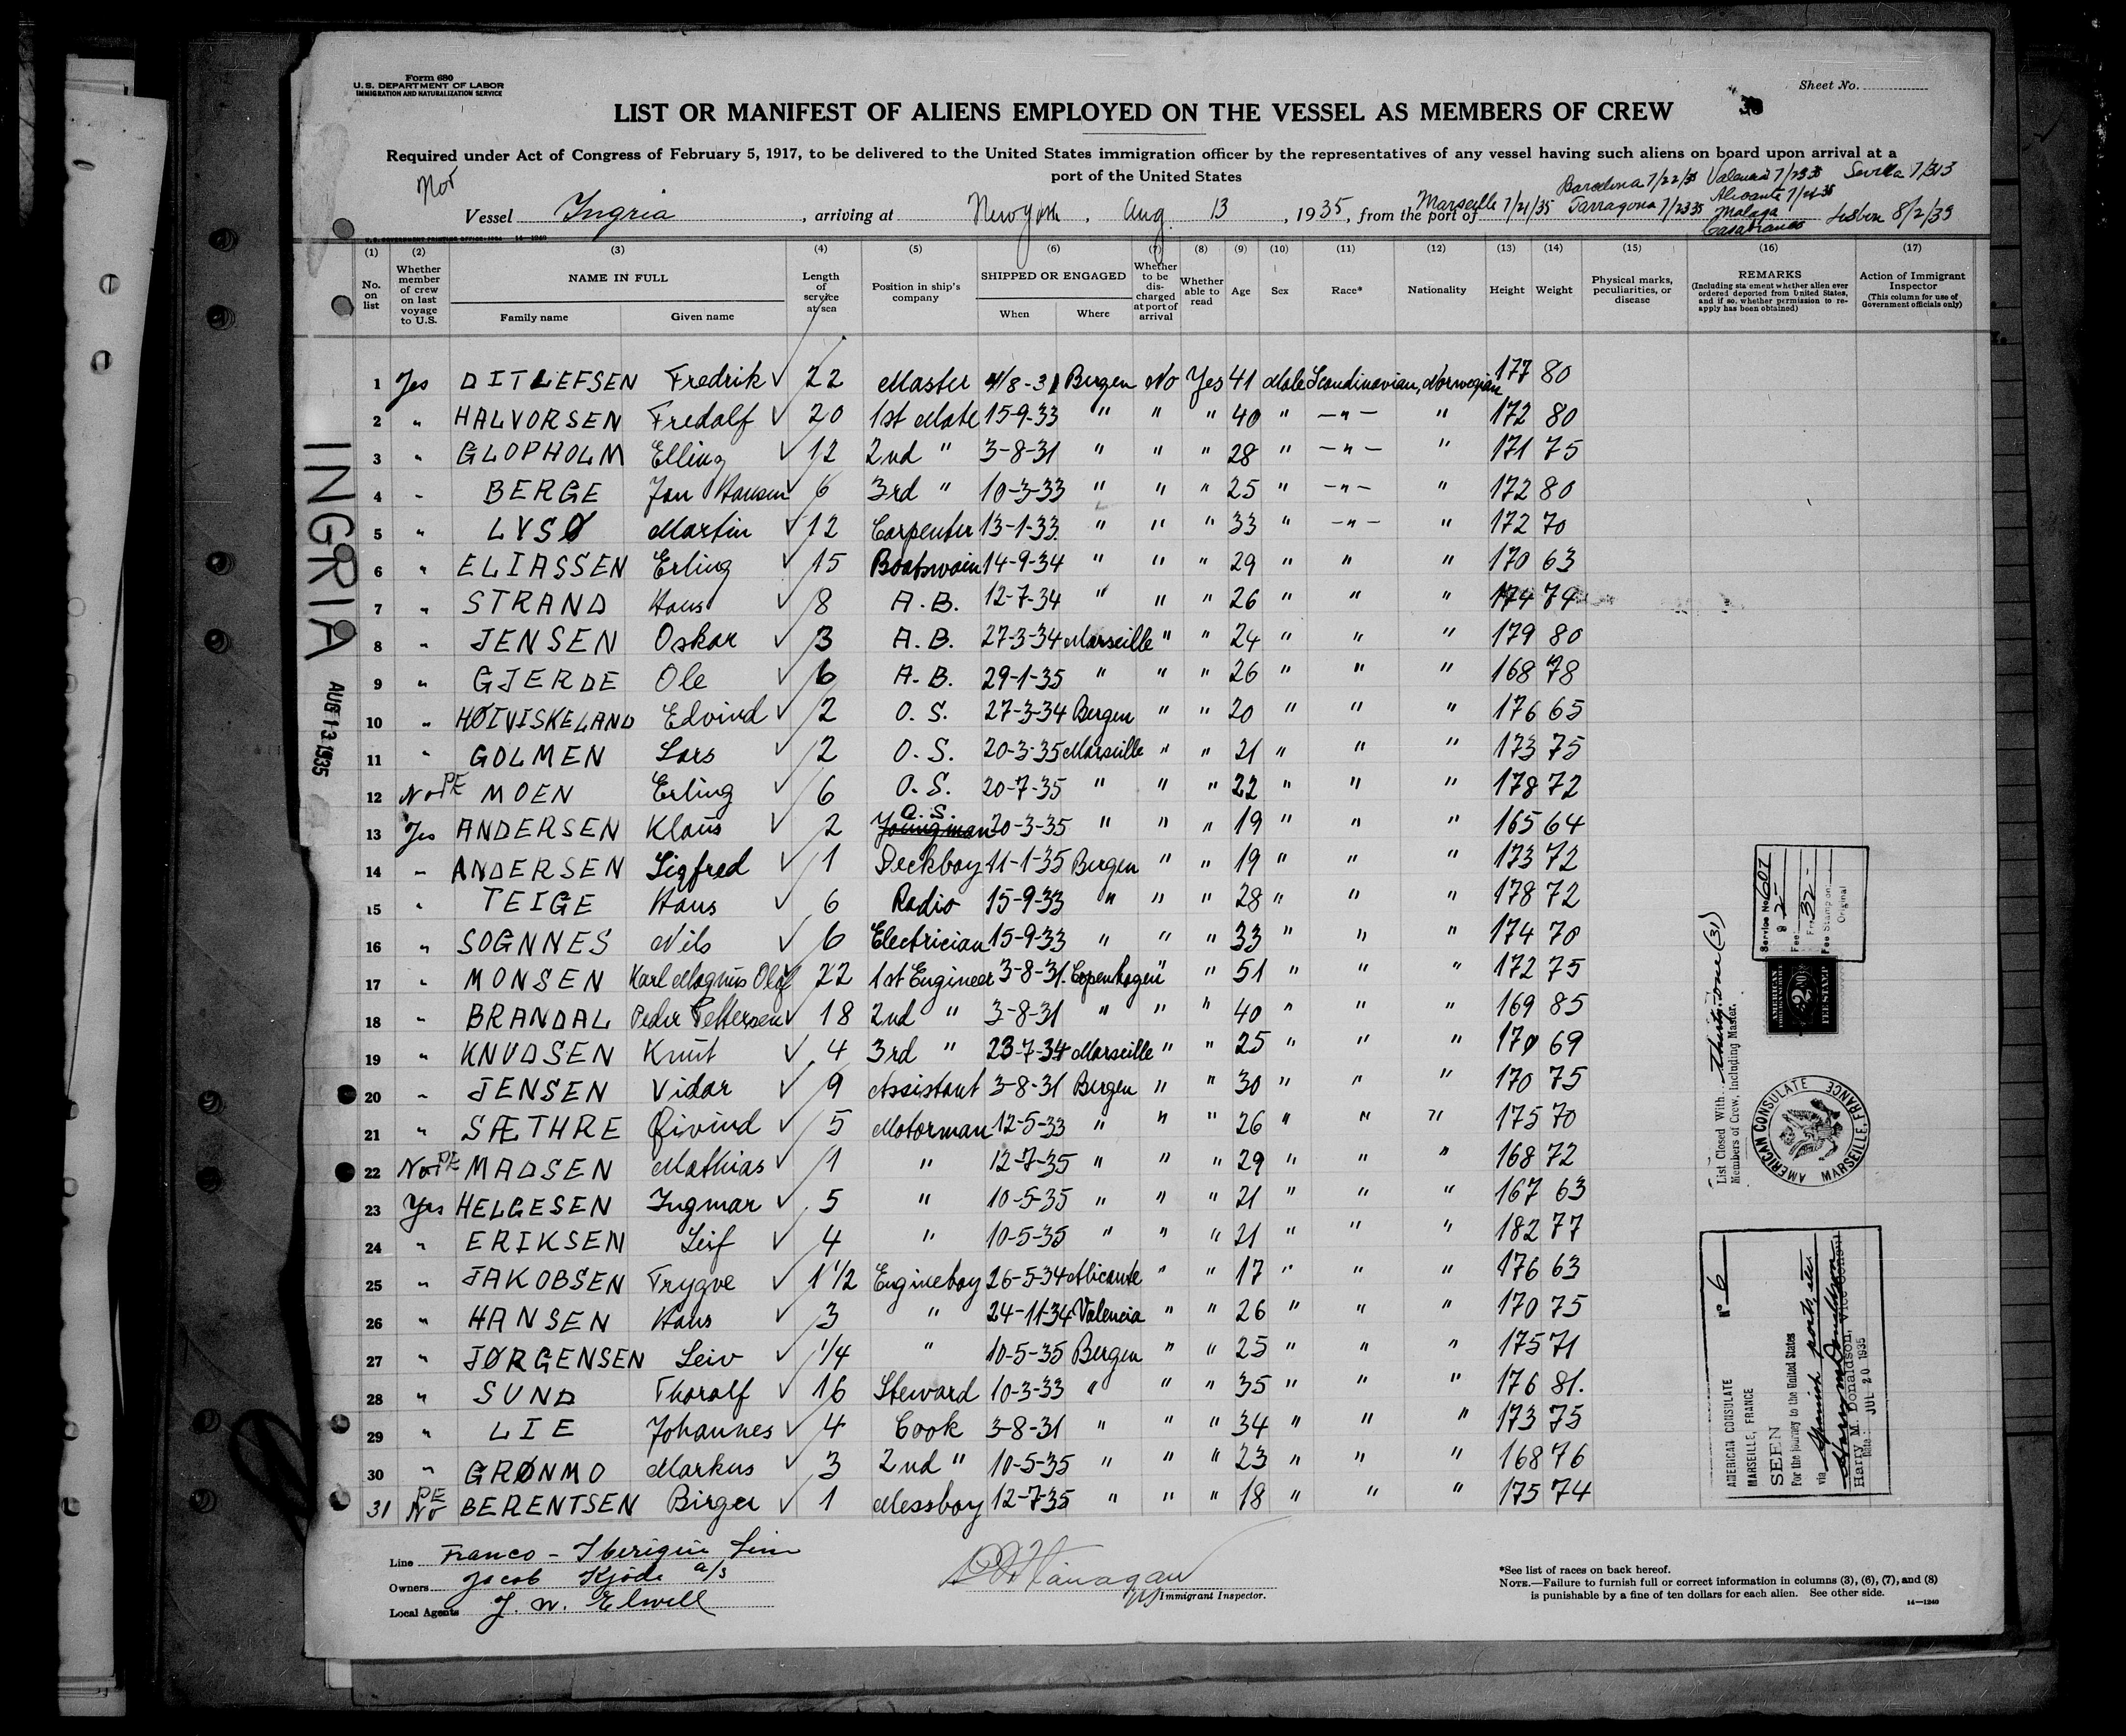 Form 680
U.S. DEPARTMENT OF LABOR
IMMIGRATION AND NATURALIZATION SERVICE
Sheet No.
LIST OR MANIFEST OF ALIENS EMPLOYED ON THE VESSEL AS MEMBERS OF CREW
Required under Act of Congress of February 5, 1917, to be delivered to the United States immigration officer by the representatives of any vessel having such aliens on board upon arrival at a
port of the United States
Nor
Barcelona 7/22/35 Valencia 7/23/35 Sevilla 7/31/35
Alicante 7/24/35
Vessel Ingria, arriving at New York, Aug. 13, 1935, from the port of Marseille 7/21/35 Tarragona 7/23/35 Malaga Lisbon 8/2/35
Casablanca
(1) (2) (3) (4) (5) (6) (7) (8) (9) (10) (11) (12) (13) (14) (15) (16) (17)
No. on list
Whether member of crew on last voyage to U.S.
NAME IN FULL
Family name Given name
Length of service at sea
Position in ship's company
SHIPPED OR ENGAGED
When Where
Whether to be discharged at port of arrival
Whether able to read
Age
Sex
Race*
Nationality
Height
Weight
Physical marks, peculiarities, or disease
REMARKS
(Including statement whether alien ever ordered deported from United States, and if so, whether permission to reapply has been obtained)
Action of Immigrant Inspector
(This column for use of Government officials only)
1 Yes DITLEFSEN Fredrik √ 22 Master 4/8-31 Bergen No Yes 41 Male Scandinavian, Norwegian 177 80
2 " HALVORSEN Fredolf √ 20 1st Mate 15-9-33 " " " 40 " -"- " 172 80
3 " GLOPHOLM Elling √ 12 2nd " 3-8-31 " " " 28 " -"- " 171 75
4 " BERGE Jan Hansen √ 6 3rd " 10-3-33 " " " 25 " -"- " 172 80
5 " LYSØ Martin √ 12 Carpenter 13-1-33 " " " 33 " -"- " 172 70
6 " ELIASSEN Erling √ 15 Boatswain 14-9-34 " " " 29 " " " 170 63
7 " STRAND Hans √ 8 A.B. 12-7-34 " " " 26 " " " 174 79
8 " JENSEN Oskar √ 3 A.B. 27-3-34 Marseille " " 24 " " " 179 80
9 " GJERDE Ole √ 6 A.B. 29-1-35 " " " 26 " " " 168 78
10 " HØIVISKELAND Edvind √ 2 O.S. 27-3-34 Bergen " " 20 " " " 176 65
11 " GOLMEN Lars √ 2 O.S. 20-3-35 Marseille " " 21 " " " 173 75
12 No PE MOEN Erling √ 6 O.S. 20-7-35 " " " 22 " " " 178 72
13 Yes ANDERSEN Klaus √ 2 Youngman O.S. 20-3-35 " " " 19 " " " 165 64
14 " ANDERSEN Sigfred √ 1 Deckboy 11-1-35 Bergen " " 19 " " " 173 72
15 " TEIGE Hans √ 6 Radio 15-9-33 " " " 28 " " " 178 72
16 " SOGNNES Nils √ 6 Electrician 15-9-33 " " " 33 " " " 174 70
17 " MONSEN Karl Magnus Olaf 22 1st Engineer 3-8-31 Copenhagen " " 51 " " " 172 75
18 " BRANDAL Peder Pettersen √ 18 2nd " 3-8-31 " " " 40 " " " 169 85
19 " KNUDSEN Knut √ 4 3rd " 23-7-34 Marseille " " 25 " " " 170 69
20 " JENSEN Vidar √ 9 Assistant 3-8-31 Bergen " " 30 " " " 170 75
21 " SÆTHRE Øivind √ 5 Motorman 12-5-33 " " " 26 " " " 175 70
22 No PE MADSEN Mathias √ 1 " 12-7-35 " " " 29 " " " 168 72
23 Yes HELGESEN Ingmar √ 5 " 10-5-35 " " " 21 " " " 167 63
24 " ERIKSEN Leif √ 4 " 10-5-35 " " " 21 " " " 182 77
25 " JAKOBSEN Trygve √ 1 1/2 Engineboy 26-5-34 Alicante " " 17 " " " 176 63
26 " HANSEN Hans √ 3 " 24-11-34 Valencia " " 26 " " " 170 75
27 " JØRGENSEN Leiv √ 1/4 " 10-5-35 Bergen " " 25 " " " 175 71
28 " SUND Thoralf √ 16 Steward 10-3-33 " " " 35 " " " 176 81.
29 " LIE Johannes √ 4 Cook 3-8-31 " " " 34 " " " 173 75
30 " GRØNMO Markus √ 3 2nd " 10-5-35 " " " 23 " " " 168 76
31 PE No BERENTSEN Birger √ 1 Messboy 12-7-35 " " " 18 " " " 175 74
INGRIA
AUG 13 1935
Service No 607
Fee: $ 2-
Fr. 32-
Fee Stamp on Original
AMERICAN FOREIGN SERVICE
$2.00
FEE STAMP
List Closed With thirty-one (31)
Members of Crew, Including Master.
AMERICAN CONSULATE MARSEILLE, FRANCE
Nº 6
AMERICAN CONSULATE
MARSEILLE, FRANCE
SEEN
For the journey to the United States
via Spanish ports, etc.
Harry M. Donaldson
Harry M. Donaldson, Vice Consul
Date: JUL 20 1935
Line Franco-Iberique Line
Owners Jacob Kjöde a/s
Local Agents J. W. Elwell
Immigrant Inspector.
*See list of races on back hereof.
NOTE.—Failure to furnish full or correct information in columns (3), (6), (7), and (8)
is punishable by a fine of ten dollars for each alien. See other side.
14—1240